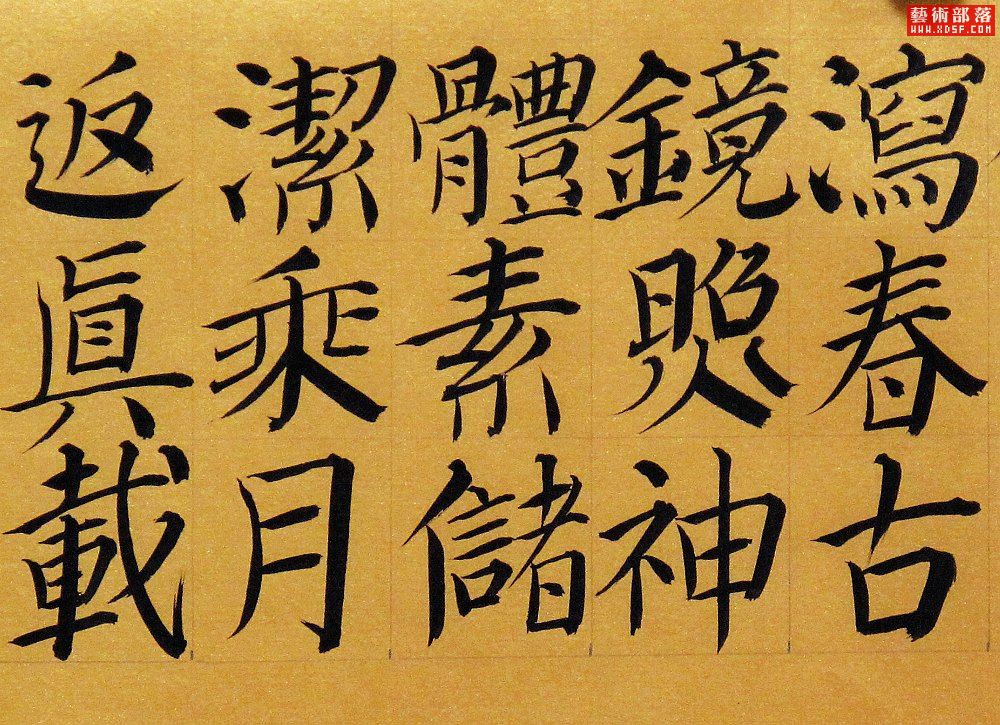 瀉春古
鏡照神
體素儲
潔乘月
返眞載
藝術部落
WWW.XDSF.COM